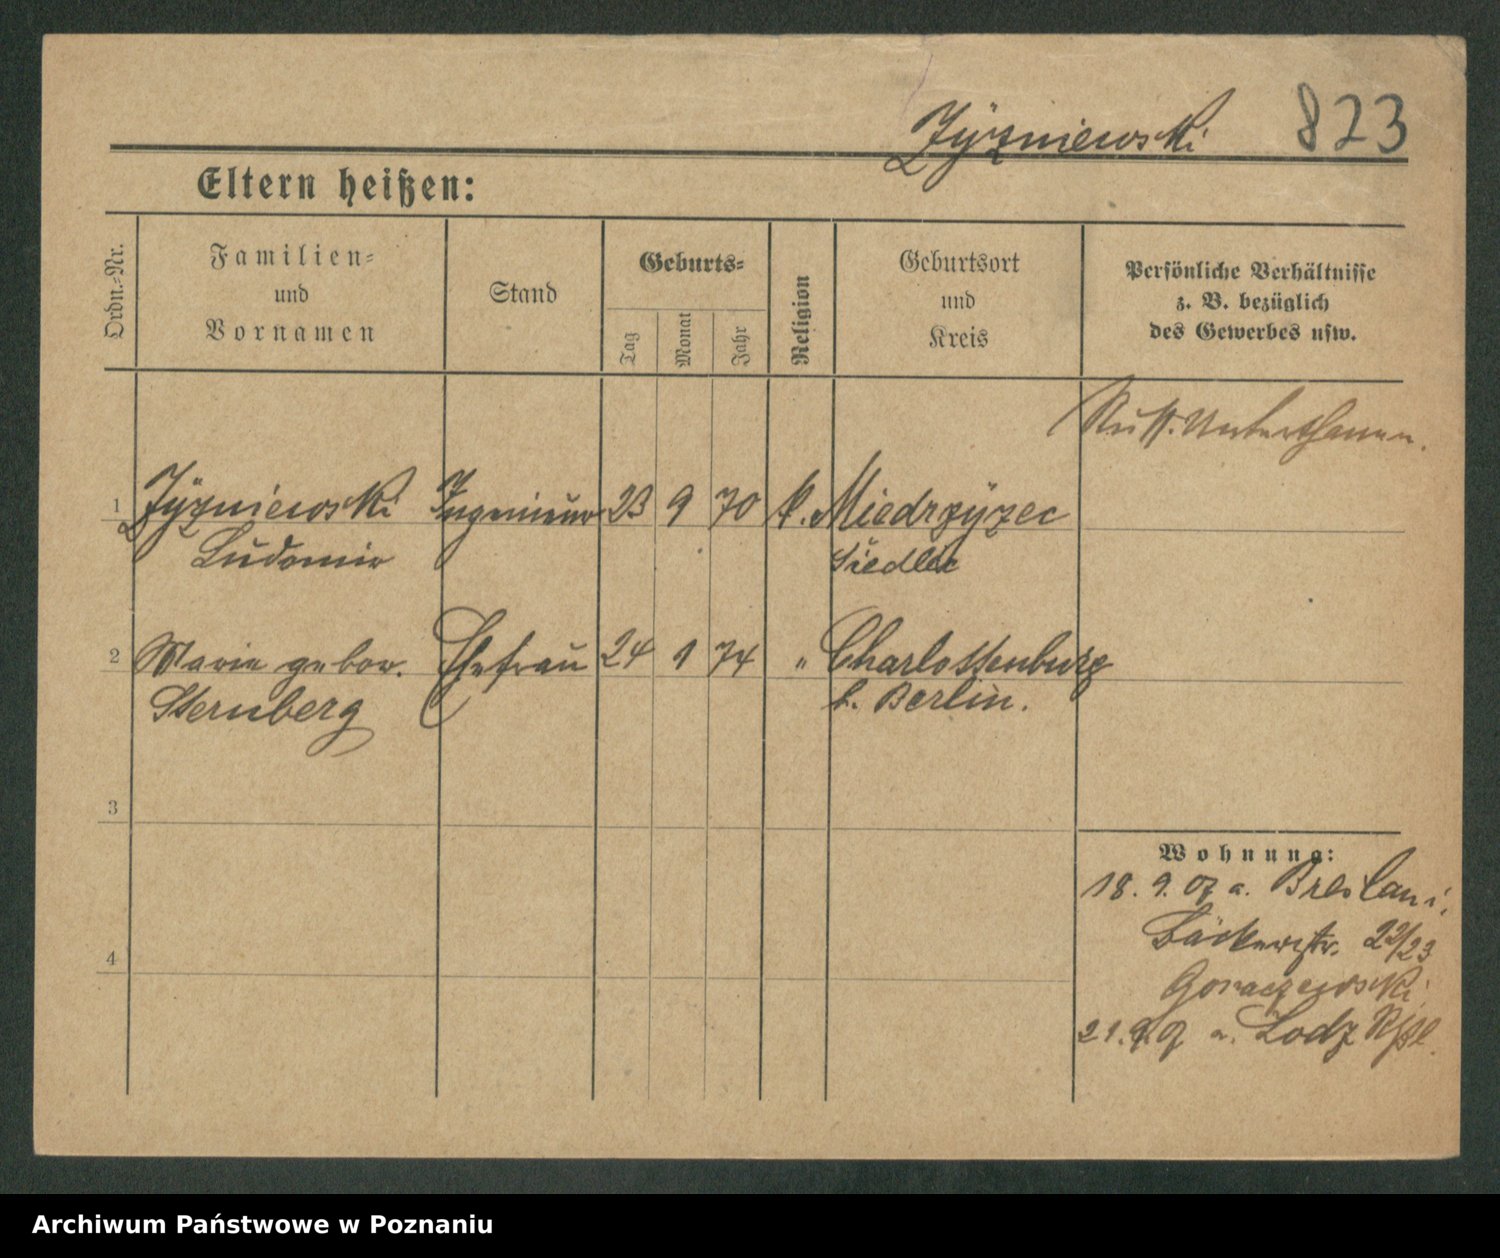 823
Zÿzniewski
Eltern heißen:
Ordn.-Nr.
Familien-
und
Vornamen
Stand
Geburts-
Tag
Monat
Jahr
Religion
Geburtsort
und
Kreis
Persönliche Verhältnisse
z. B. bezüglich
des Gewerbes usw.
Russ. Unterthanen.
1 Zÿzniewski Ingenieur 23 9 70 k. Miedrzÿzec
Ludomir Siedlec
2 Marie gebor. Ehefrau 24 1 74 " Charlottenburg
Sternberg b. Berlin.
3
4
Wohnung:
18. 9. 07 a. Breslau
Bäckerstr. 22/23
Goraczewski
21. 9. 9 a. Lodz
Archiwum Państwowe w Poznaniu